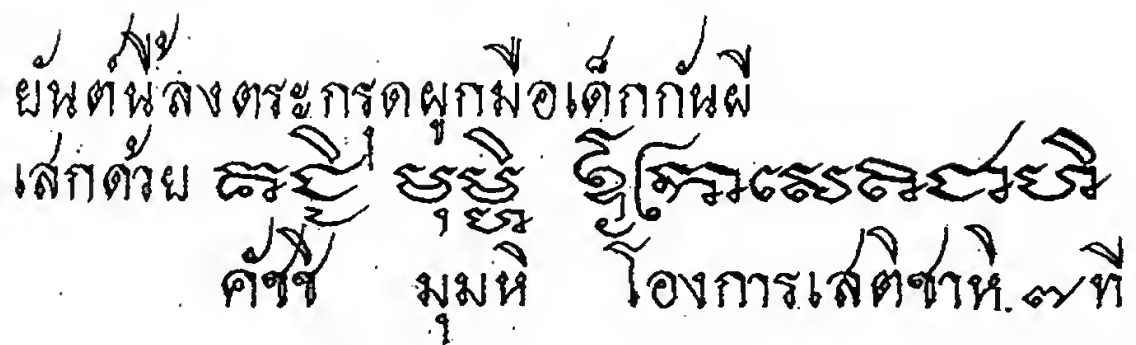 ยันต์นี้ลงตระกรุดผูกมือเด็กกันผี
เสกด้วย
คัชชิ มุมหิ โองการเสติชาหิ. ๗ ที